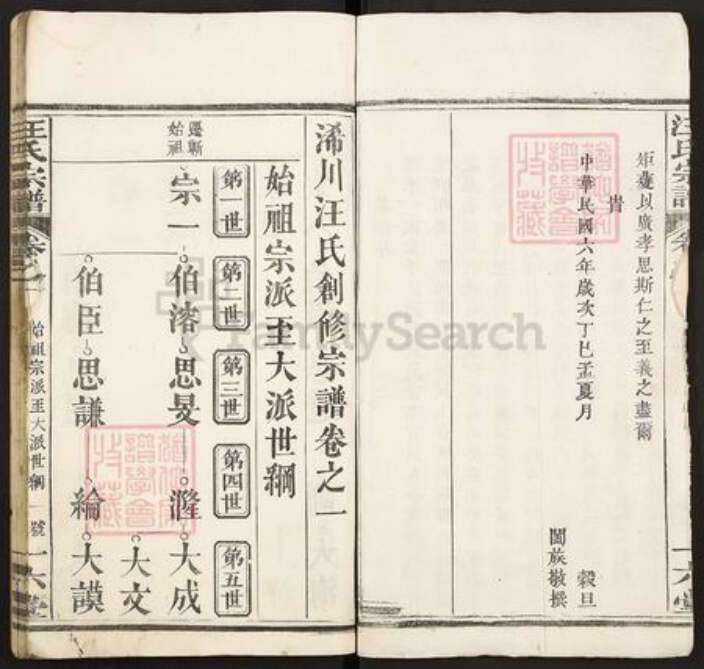 汪氏宗譜
矩薆以廣孝思斯仁之至義之盡爾
旹
中華民國六年歲次丁巳孟夏月
穀旦
闔族敬撰
浠川汪氏創修宗譜卷之一
始祖宗派至大派世綱
第一世
第二世
第三世
第四世
第五世
遷蘄
始祖
宗一
伯溶
思旻
漋
大成
大文
伯臣
思謙
綸
大謨
汪氏宗譜
卷之一
始祖宗派至大派世綱
號
一
六
堂
FamilySearch